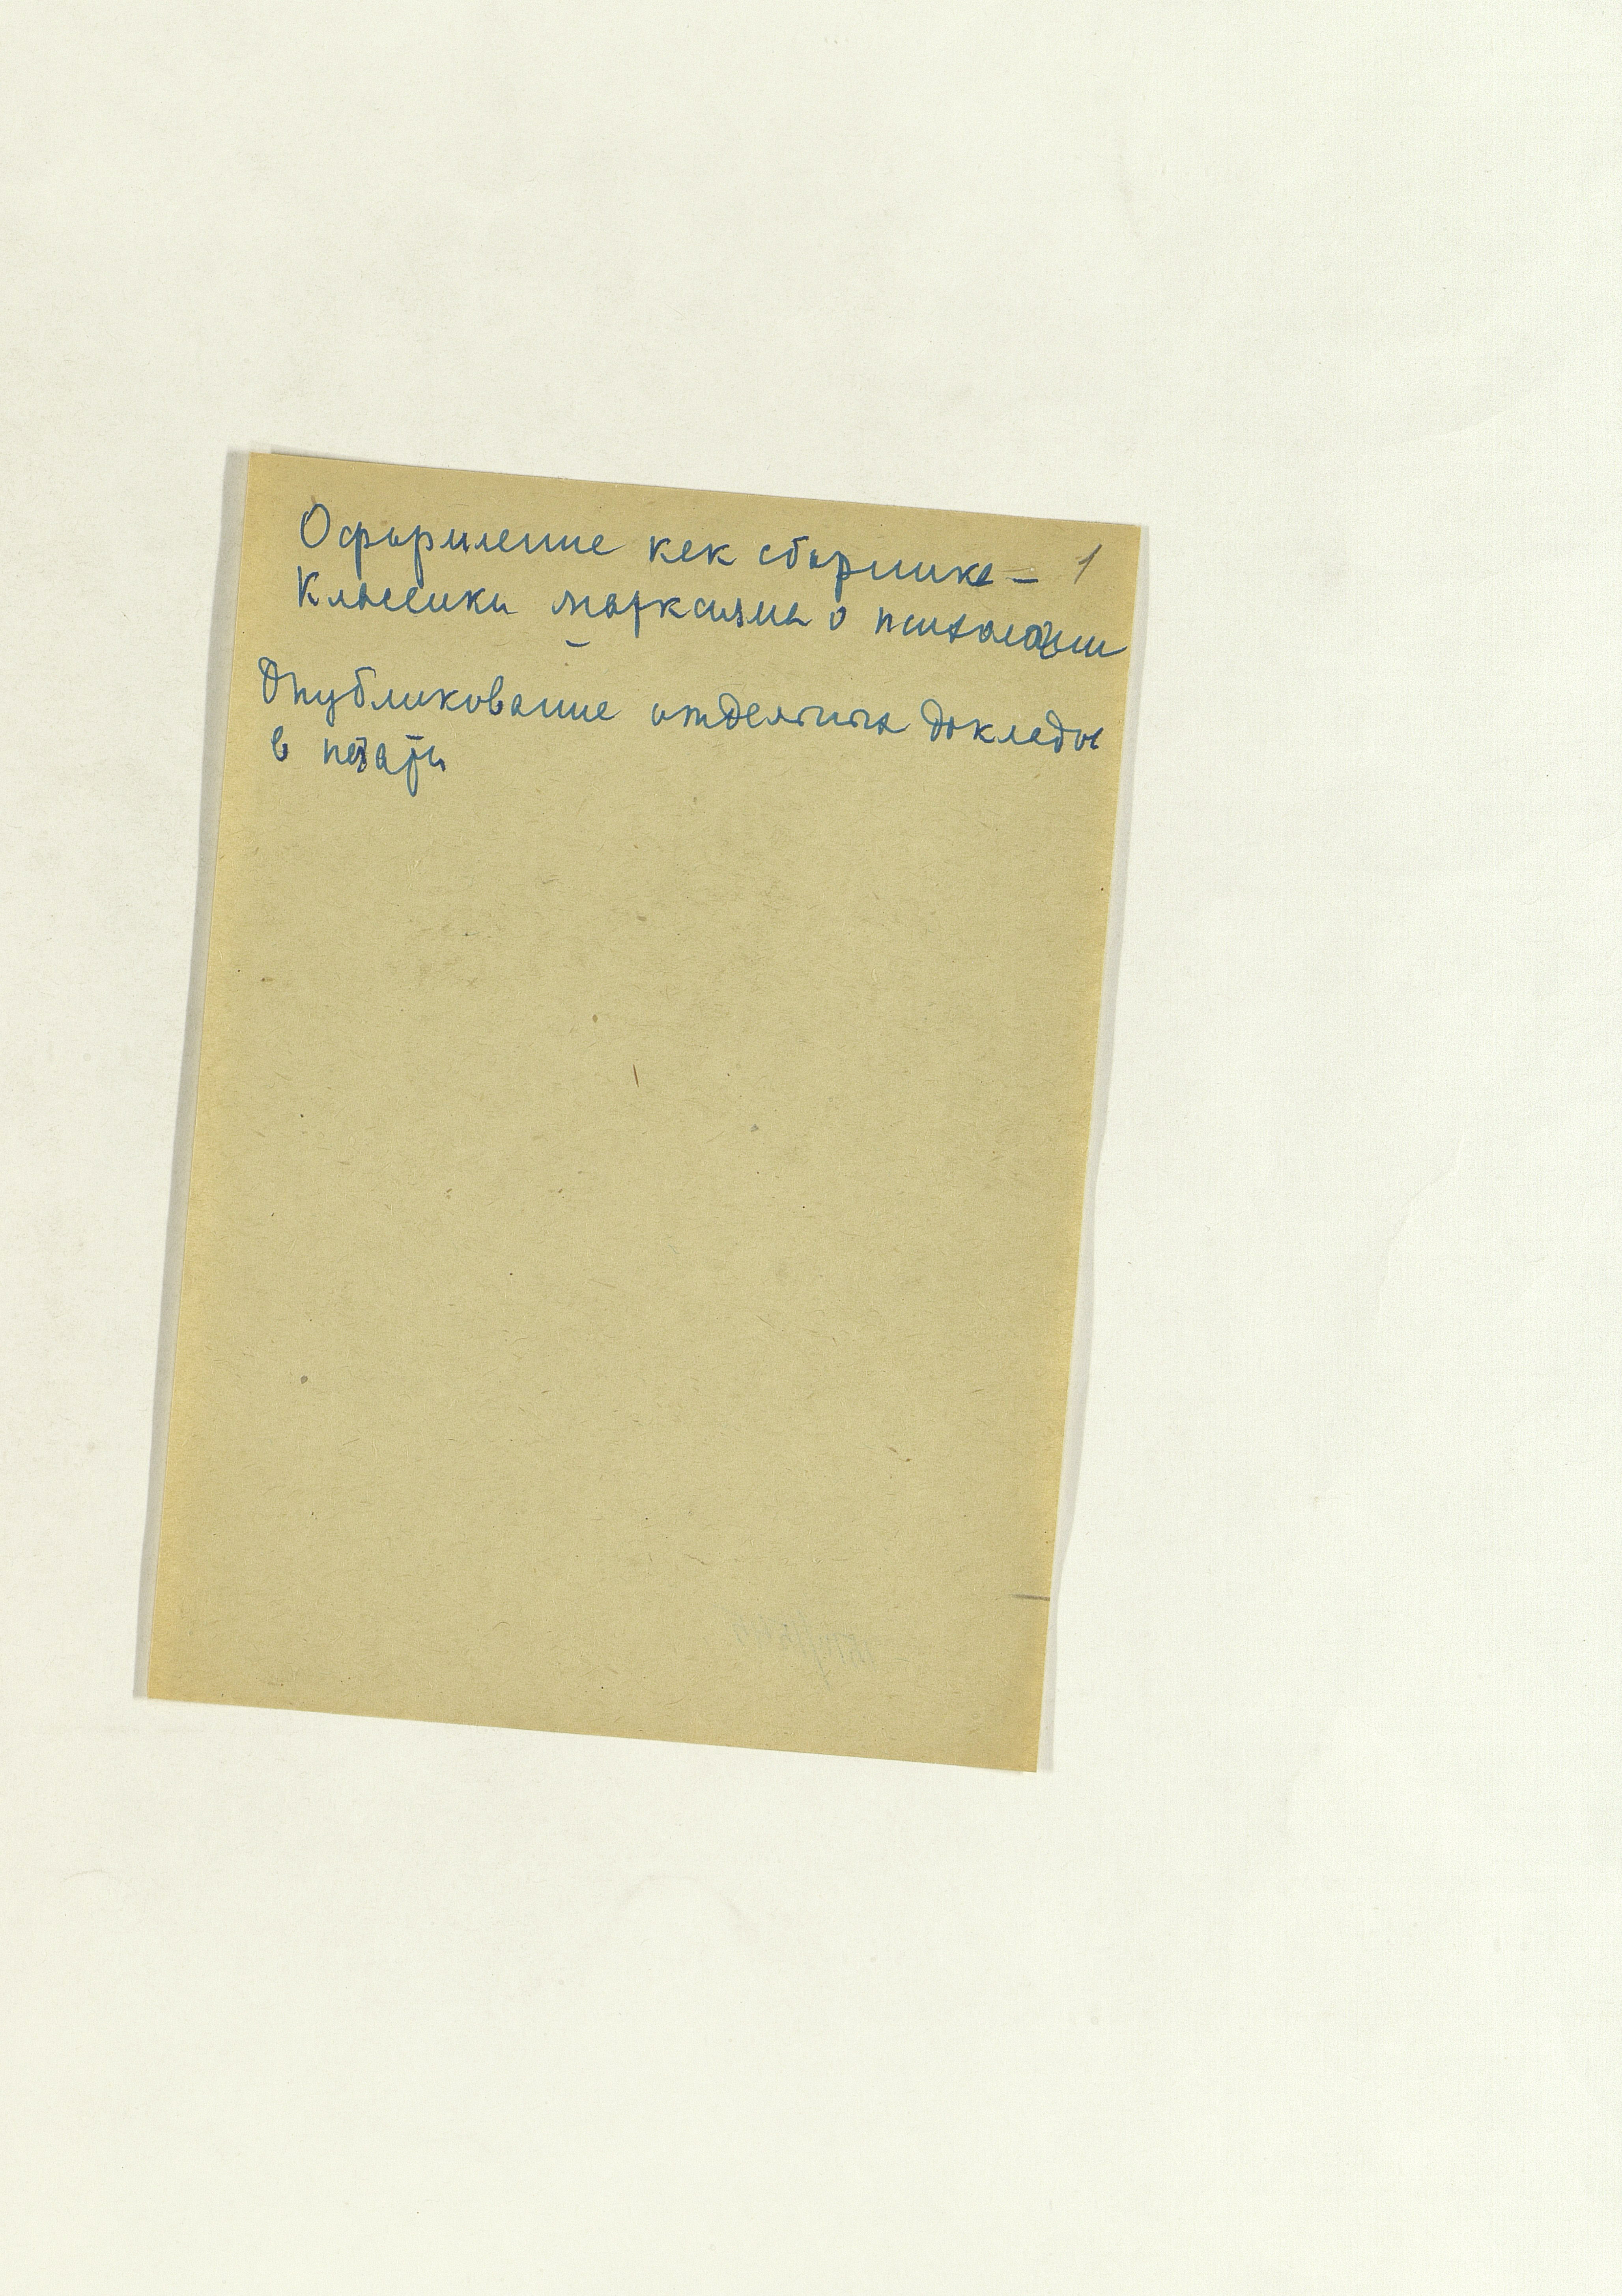 Оформление как сборника — 1
Классики марксизма о психологии
—
Опубликование отдельных доклады
в печати